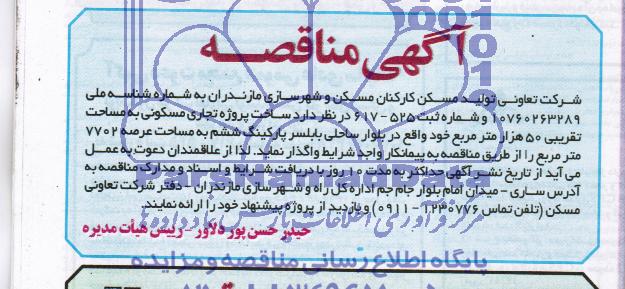 آگهی مناقصه
شرکت تعاونی تولید مسکن کارکنان مسکن و شهرسازی مازندران به شماره شناسه ملی
۱۰۷۶۰۲۶۳۲۸۹ و شماره ثبت ۵۲۵ - ۶۱۷ در نظر دارد ساخت پروژه تجاری مسکونی به مساحت
تقریبی ۵۰ هزار متر مربع خود واقع در بلوار ساحلی بابلسر پارکینگ ششم به مساحت عرصه ۷۷۰۲
متر مربع را از طریق مناقصه به پیمانکار واجد شرایط واگذار نماید. لذا از علاقمندان دعوت به عمل
می آید از تاریخ نشر آگهی حداکثر به مدت ۱۰ روز با دریافت شرایط و اسناد و مدارک مناقصه به
آدرس ساری - میدان امام بلوار جام جم اداره کل راه و شهرسازی مازندران - دفتر شرکت تعاونی
مسکن (تلفن تماس ۱۲۳۰۷۷۶ - ۰۹۱۱) و بازدید از پروژه پیشنهاد خود را ارائه نمایند.
حیدر حسن پور دلاور - رییس هیأت مدیره
پایگاه اطلاع رسانی مناقصه و مزایده